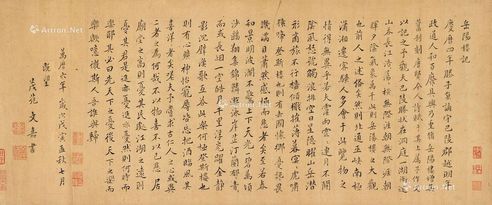 岳陽樓記
慶曆四年滕子京謫守巴陵越明年
政通人和百廢具興乃重修岳陽樓增其
舊制刻唐賢今人詩賦于其上屬予作文
以記之予觀夫巴陵勝狀在洞庭一湖銜遠
山吞長江浩浩湯湯橫無際涯朝
暉夕陰氣象萬千此則岳陽樓之大觀也
前人之述備矣然則北通巫峽南極
瀟湘遷客騷人多會于此覽物之
情得無異乎若夫霪雨霏霏連月不開
陰風怒號濁浪排空日星隱曜山岳潛
形商旅不行檣傾楫摧薄暮冥冥虎嘯
猿啼登斯樓也則有去國懷鄉憂讒畏
譏滿目蕭然感極而悲者矣至若春
和景明波瀾不驚上下天光一碧萬頃
沙鷗翔集錦鱗游泳岸芷汀蘭郁郁青青
而或長烟一空皓月千里浮光耀金靜
影沉璧漁歌互答此樂何極登斯樓也
則有心曠神怡寵辱皆忘把酒臨風其
喜洋洋者矣嗟夫予嘗求古仁人之心或異
二者之為何哉不以物喜不以己悲居
廟堂之高則憂其民處江湖之遠則
憂其君是進亦憂退亦憂然則何時而
樂耶其必曰先天下之憂而憂後天下之樂而
樂歟噫微斯人吾誰與歸
萬曆六年歲次戊寅孟秋七月
既望
茂苑文嘉書